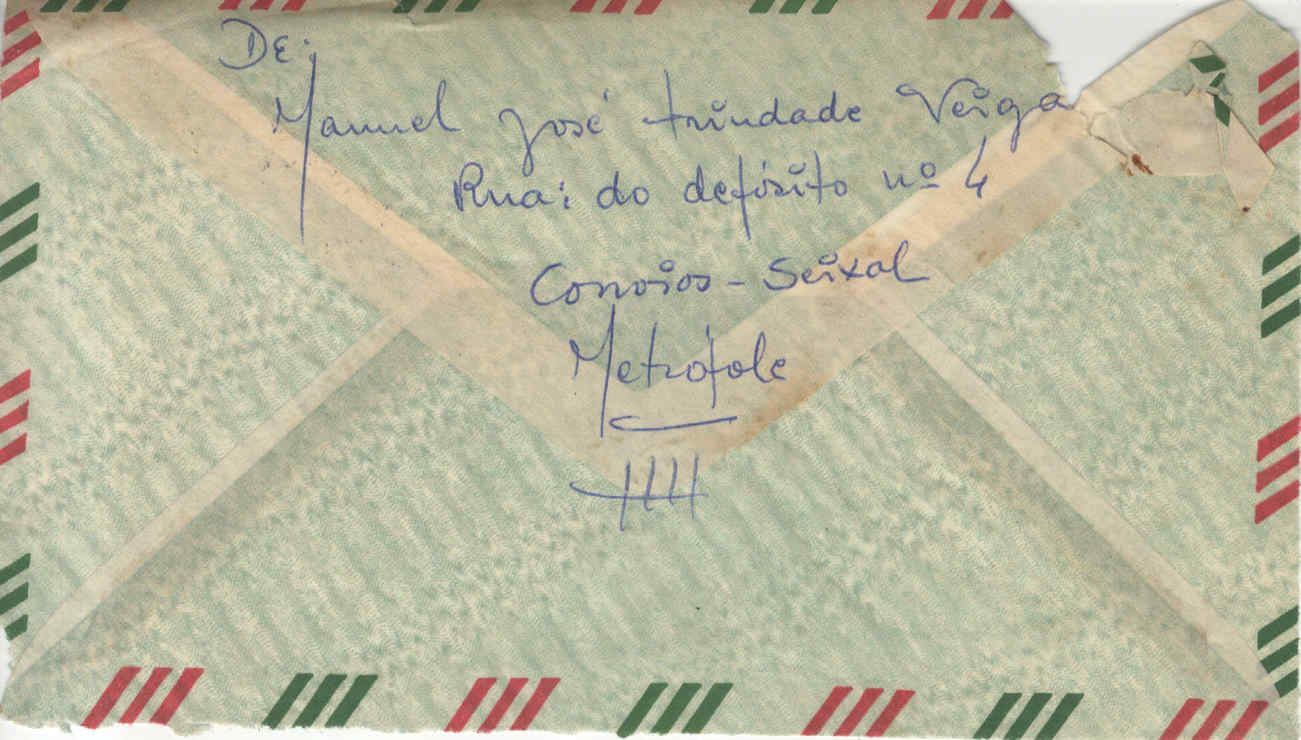 De:
Manuel José trindade Veiga
Rua: do depósito nº 4
Corroios - Seixal
Metrópole